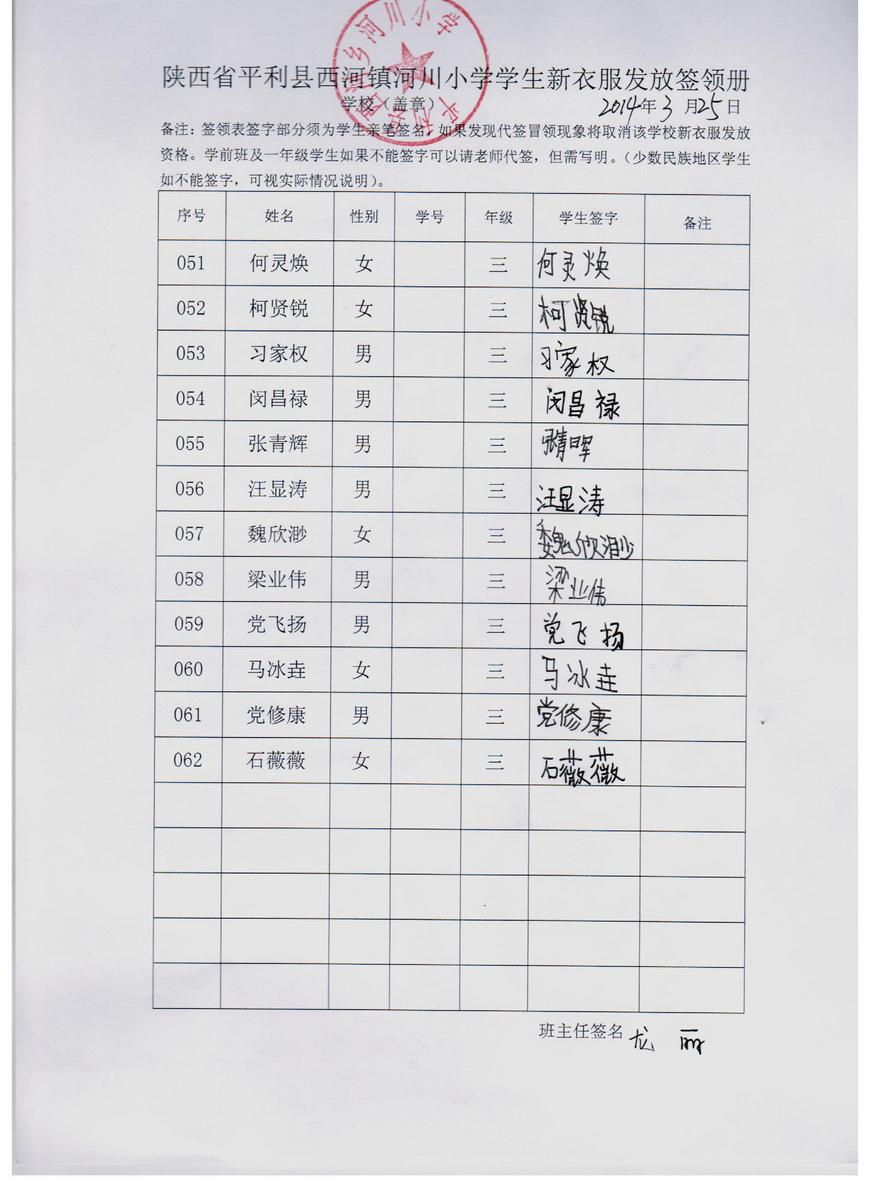 陕西省平利县西河镇河川小学学生新衣服发放签领册
学校（盖章） 2014年3月25日
备注：签领表签字部分须为学生亲笔签名，如果发现代签冒领现象将取消该学校新衣服发放
资格。学前班及一年级学生如果不能签字可以请老师代签，但需写明。（少数民族地区学生
如不能签字，可视实际情况说明）。
序号 姓名 性别 学号 年级 学生签字 备注
051 何灵焕 女 三 何灵焕
052 柯贤锐 女 三 柯贤锐
053 习家权 男 三 习家权
054 闵昌禄 男 三 闵昌禄
055 张青辉 男 三 张青晖
056 汪显涛 男 三 汪显涛
057 魏欣渺 女 三 魏欣渺
058 梁业伟 男 三 梁业伟
059 党飞扬 男 三 党飞扬
060 马冰垚 女 三 马冰垚
061 党修康 男 三 党修康
062 石薇薇 女 三 石薇薇
班主任签名 龙丽